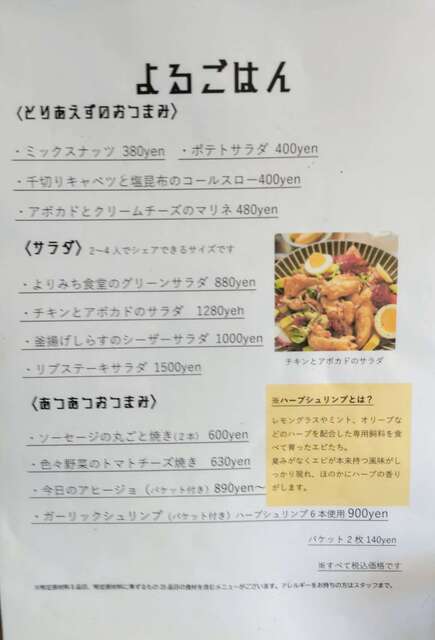 よるごはん
〈とりあえずのおつまみ〉
・ミックスナッツ 380yen ・ポテトサラダ 400yen
・千切りキャベツと塩昆布のコールスロー400yen
・アボカドとクリームチーズのマリネ 480yen
〈サラダ〉 2~4人でシェアできるサイズです
・よりみち食堂のグリーンサラダ 880yen
・チキンとアボカドのサラダ 1280yeh
・釜揚げしらすのシーザーサラダ 1000yen
・リブステーキサラダ 1500yen
チキンとアボカドのサラダ
〈あつあつおつまみ〉
・ソーセージの丸ごと焼き(2本) 600yen
・色々野菜のトマトチーズ焼き 630yen
・今日のアヒージョ (バケット付き) 890yen~
・ガーリックシュリンプ (バケット付き) ハーブシュリンプ6本使用 900yen
※ハーブシュリンプとは?
レモングラスやミント、オリーブな
どのハーブを配合した専用飼料を食
べて育ったエビたち。
臭みがなくエビが本来持つ風味がし
っかり現れ、ほのかにハーブの香り
がします。
バケット2枚 140yen
※すべて税込価格です
※特定原材料8品目、特定原材料に準ずるもの20品目の食材を含むメニューがございます。アレルギーをお持ちの方はスタッフまで。